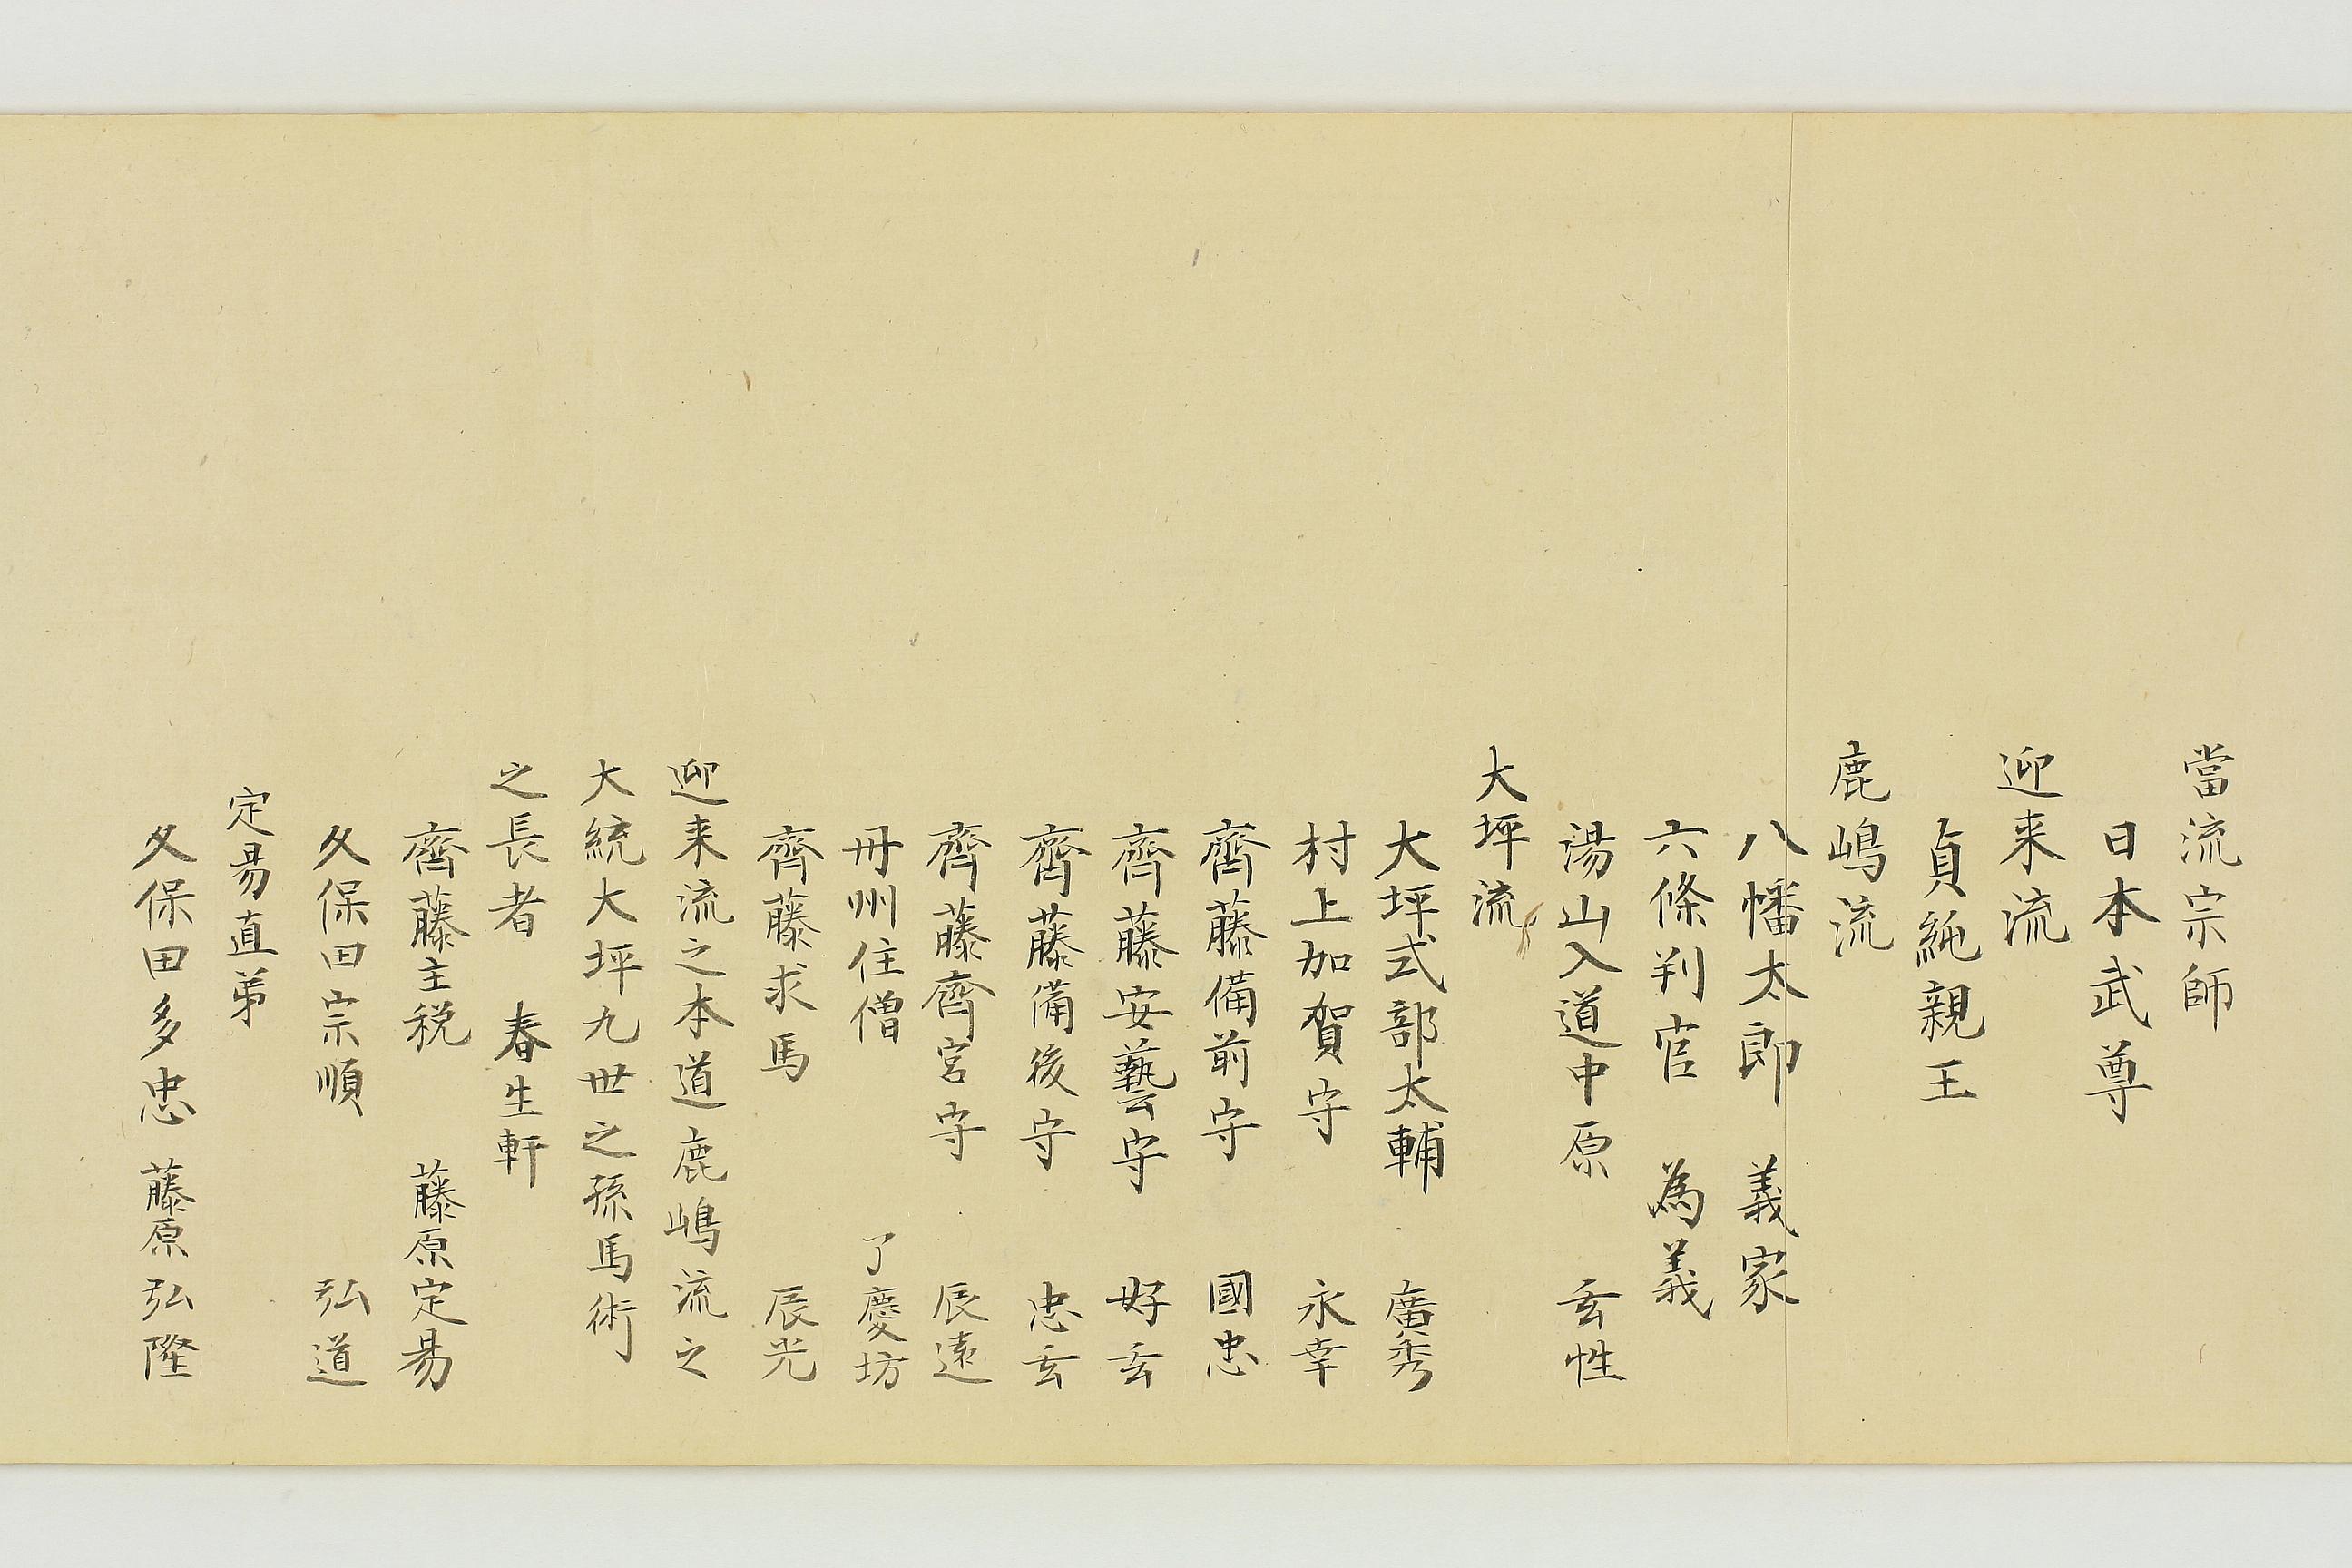 當流宗師
日本武尊
迎来流
貞純親王
鹿嶋流
八幡太郎　義家
六條判官　為義
湯山入道中原　玄性
大坪流
大坪式部太輔　廣秀
村上加賀守　永幸
齊藤備前守　國忠
齊藤安藝守　好玄
齊藤備後守　忠玄
齊藤齊宮守　辰遠
丹州住僧　了慶坊
齊藤求馬　辰光
迎来流之本道鹿嶋流之
大統大坪九世之孫馬術
之長者　春生軒
齊藤主税　藤原定易
久保田宗順　弘道
定易直弟
久保田多忠　藤原弘隆